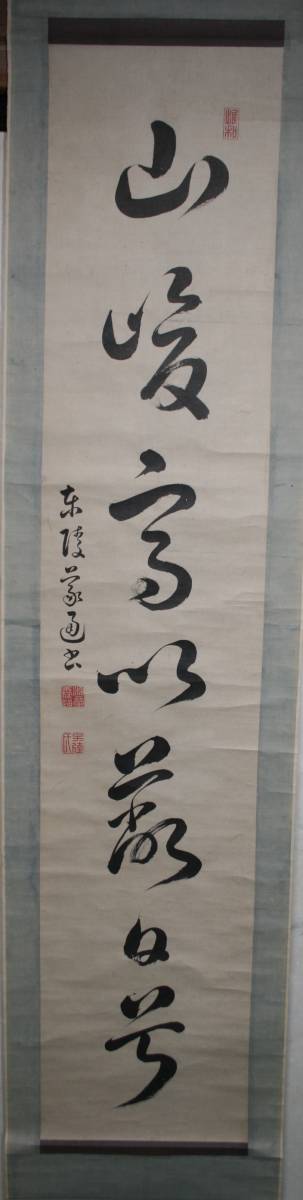 山峻高以蔽日兮
東陵蒙通書